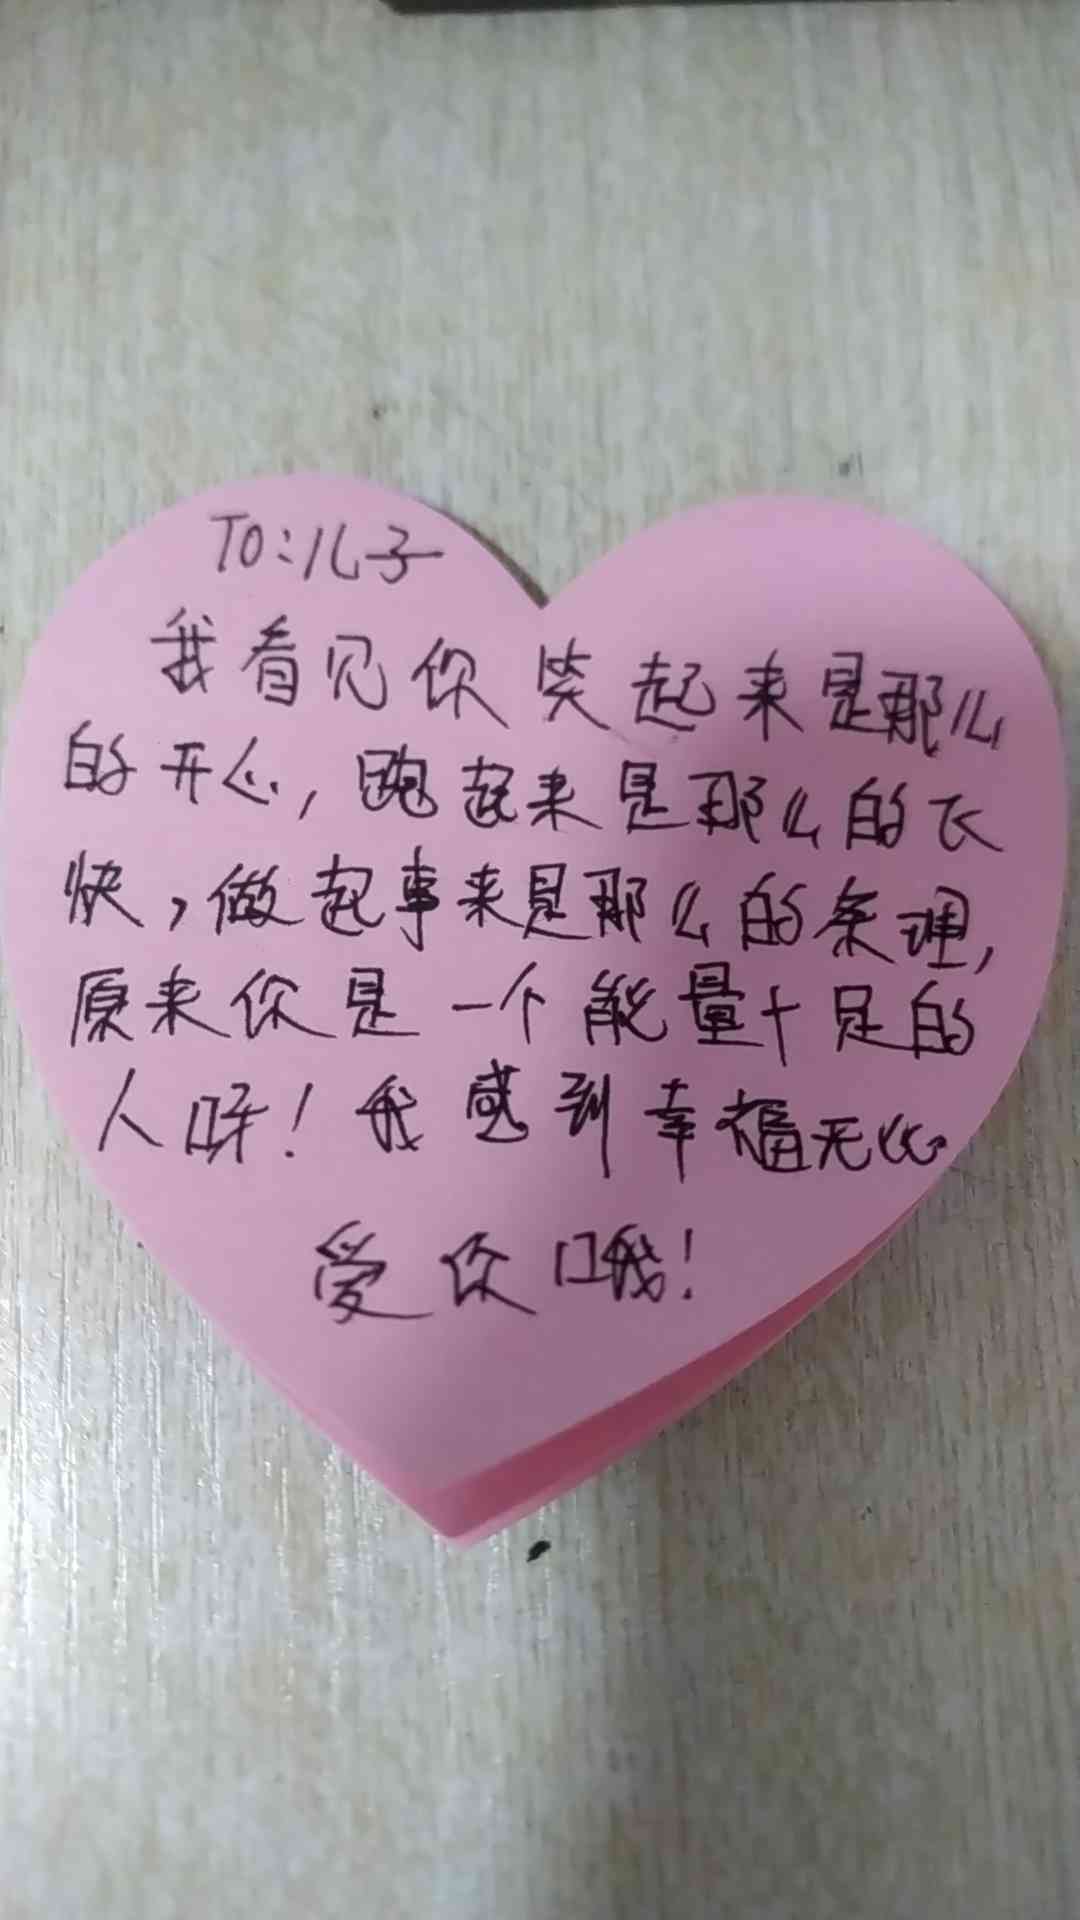 TO:儿子
我看见你笑起来是那么
的开心,跑起来是那么的飞
快,做起事来是那么的条理,
原来你是一个能量十足的
人呀!我感到幸福无比
爱你哦!